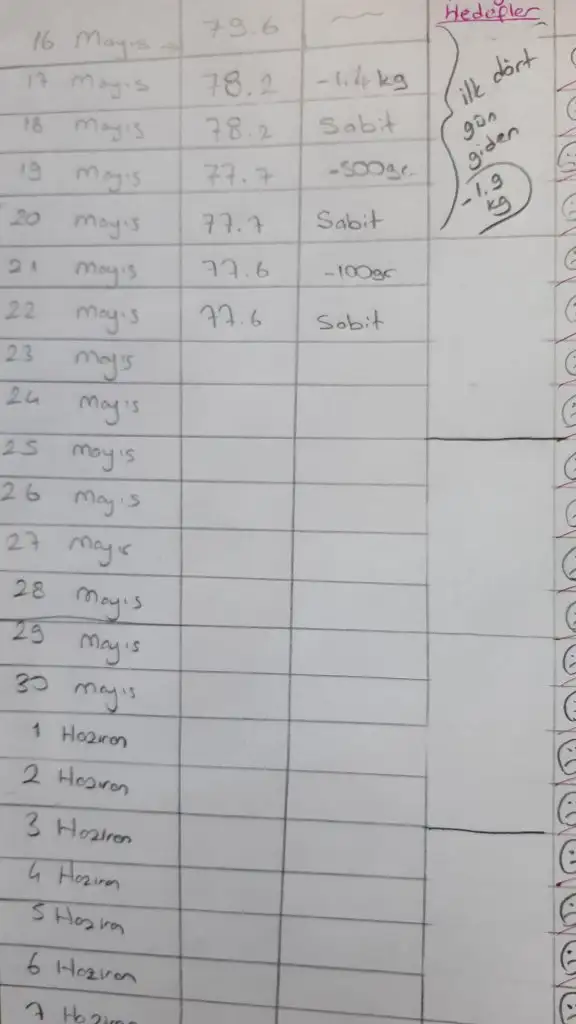 Hedefler
16 Mayıs 79.6 ~
17 Mayıs 78.2 -1.4 kg
18 Mayıs 78.2 Sabit
19 Mayıs 77.7 -500gr
20 Mayıs 77.7 Sabit
ilk dört
gün
giden
-1.9
kg
21 Mayıs 77.6 -100gr
22 Mayıs 77.6 Sabit
23 Mayıs
24 Mayıs
25 Mayıs
26 Mayıs
27 Mayıs
28 Mayıs
29 Mayıs
30 Mayıs
1 Haziran
2 Haziran
3 Haziran
4 Haziran
5 Haziran
6 Haziran
7 Haziran